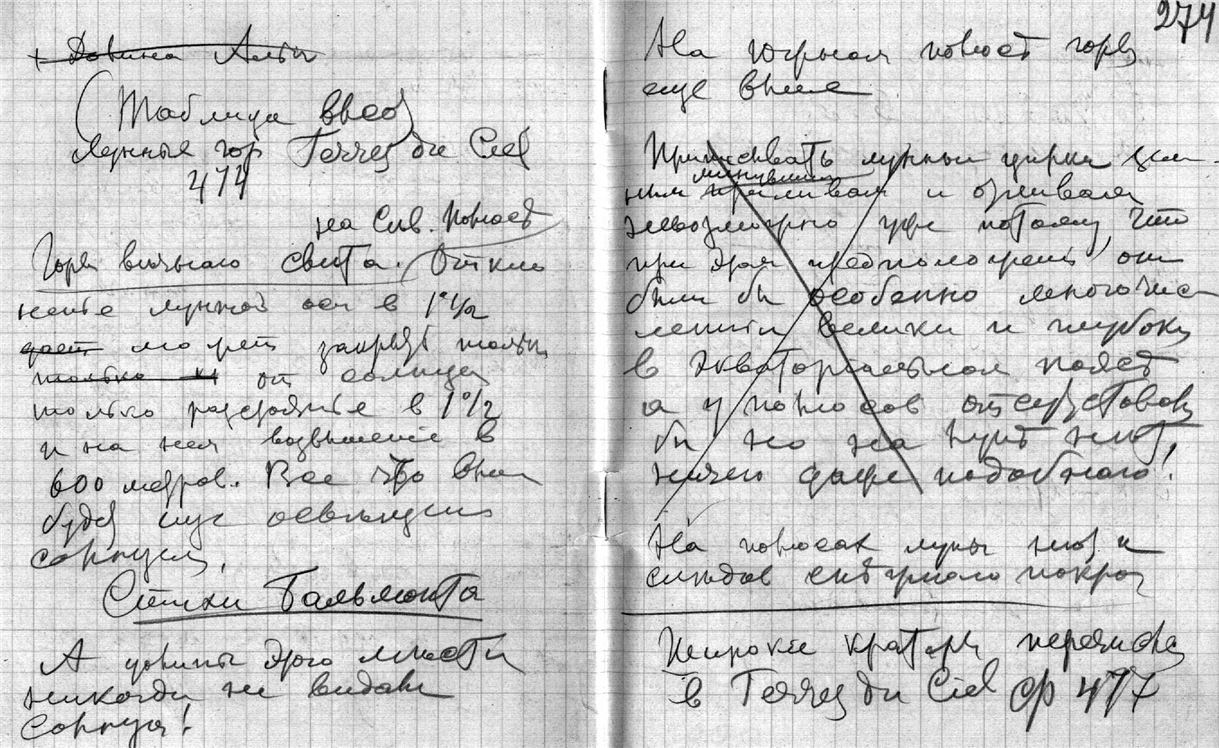 + Долина Альп
(Таблица высо)
Лунные гор Terres du Ciel
474
на Сев. Полюсе
Горы вечнаго света. Откло
нение лунной оси в 1°1/2
дает может закрыть только
только от солнца
только разстояние в 1°1/2
и на нем возвышение в
600 метров. Все что выше
будет еще освещено
солнцем.
Стихи Бальмонта
А долины этого места
никогда не видали
солнца!
274
На Южном полюсе горы
еще выше
Приписывать лунные цирки
минувшим
ным приливам и отливам
невозможно уже потому что
при этом предположении они
были бы особенно многочис
ленны велики и глубоки
в экваториальном поясе
а у полюсов отсутствовали
бы но на луне нет
ничего даже подобного!
На полюсах луны нет и
следов снежного покрова
Широкие кратеры перечислены
в Terres du Ciel ср 477